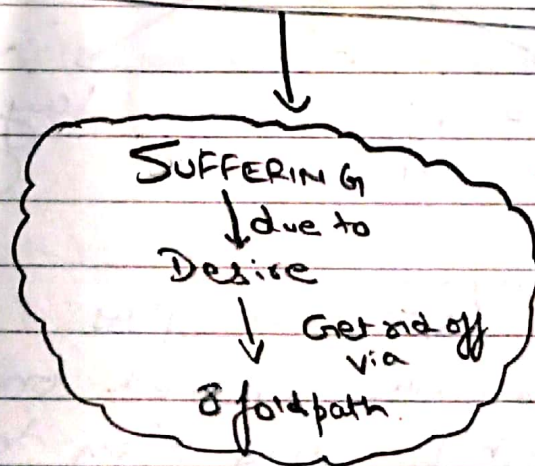 SUFFERING
due to
Desire
Get rid off
via
8 foldpath.